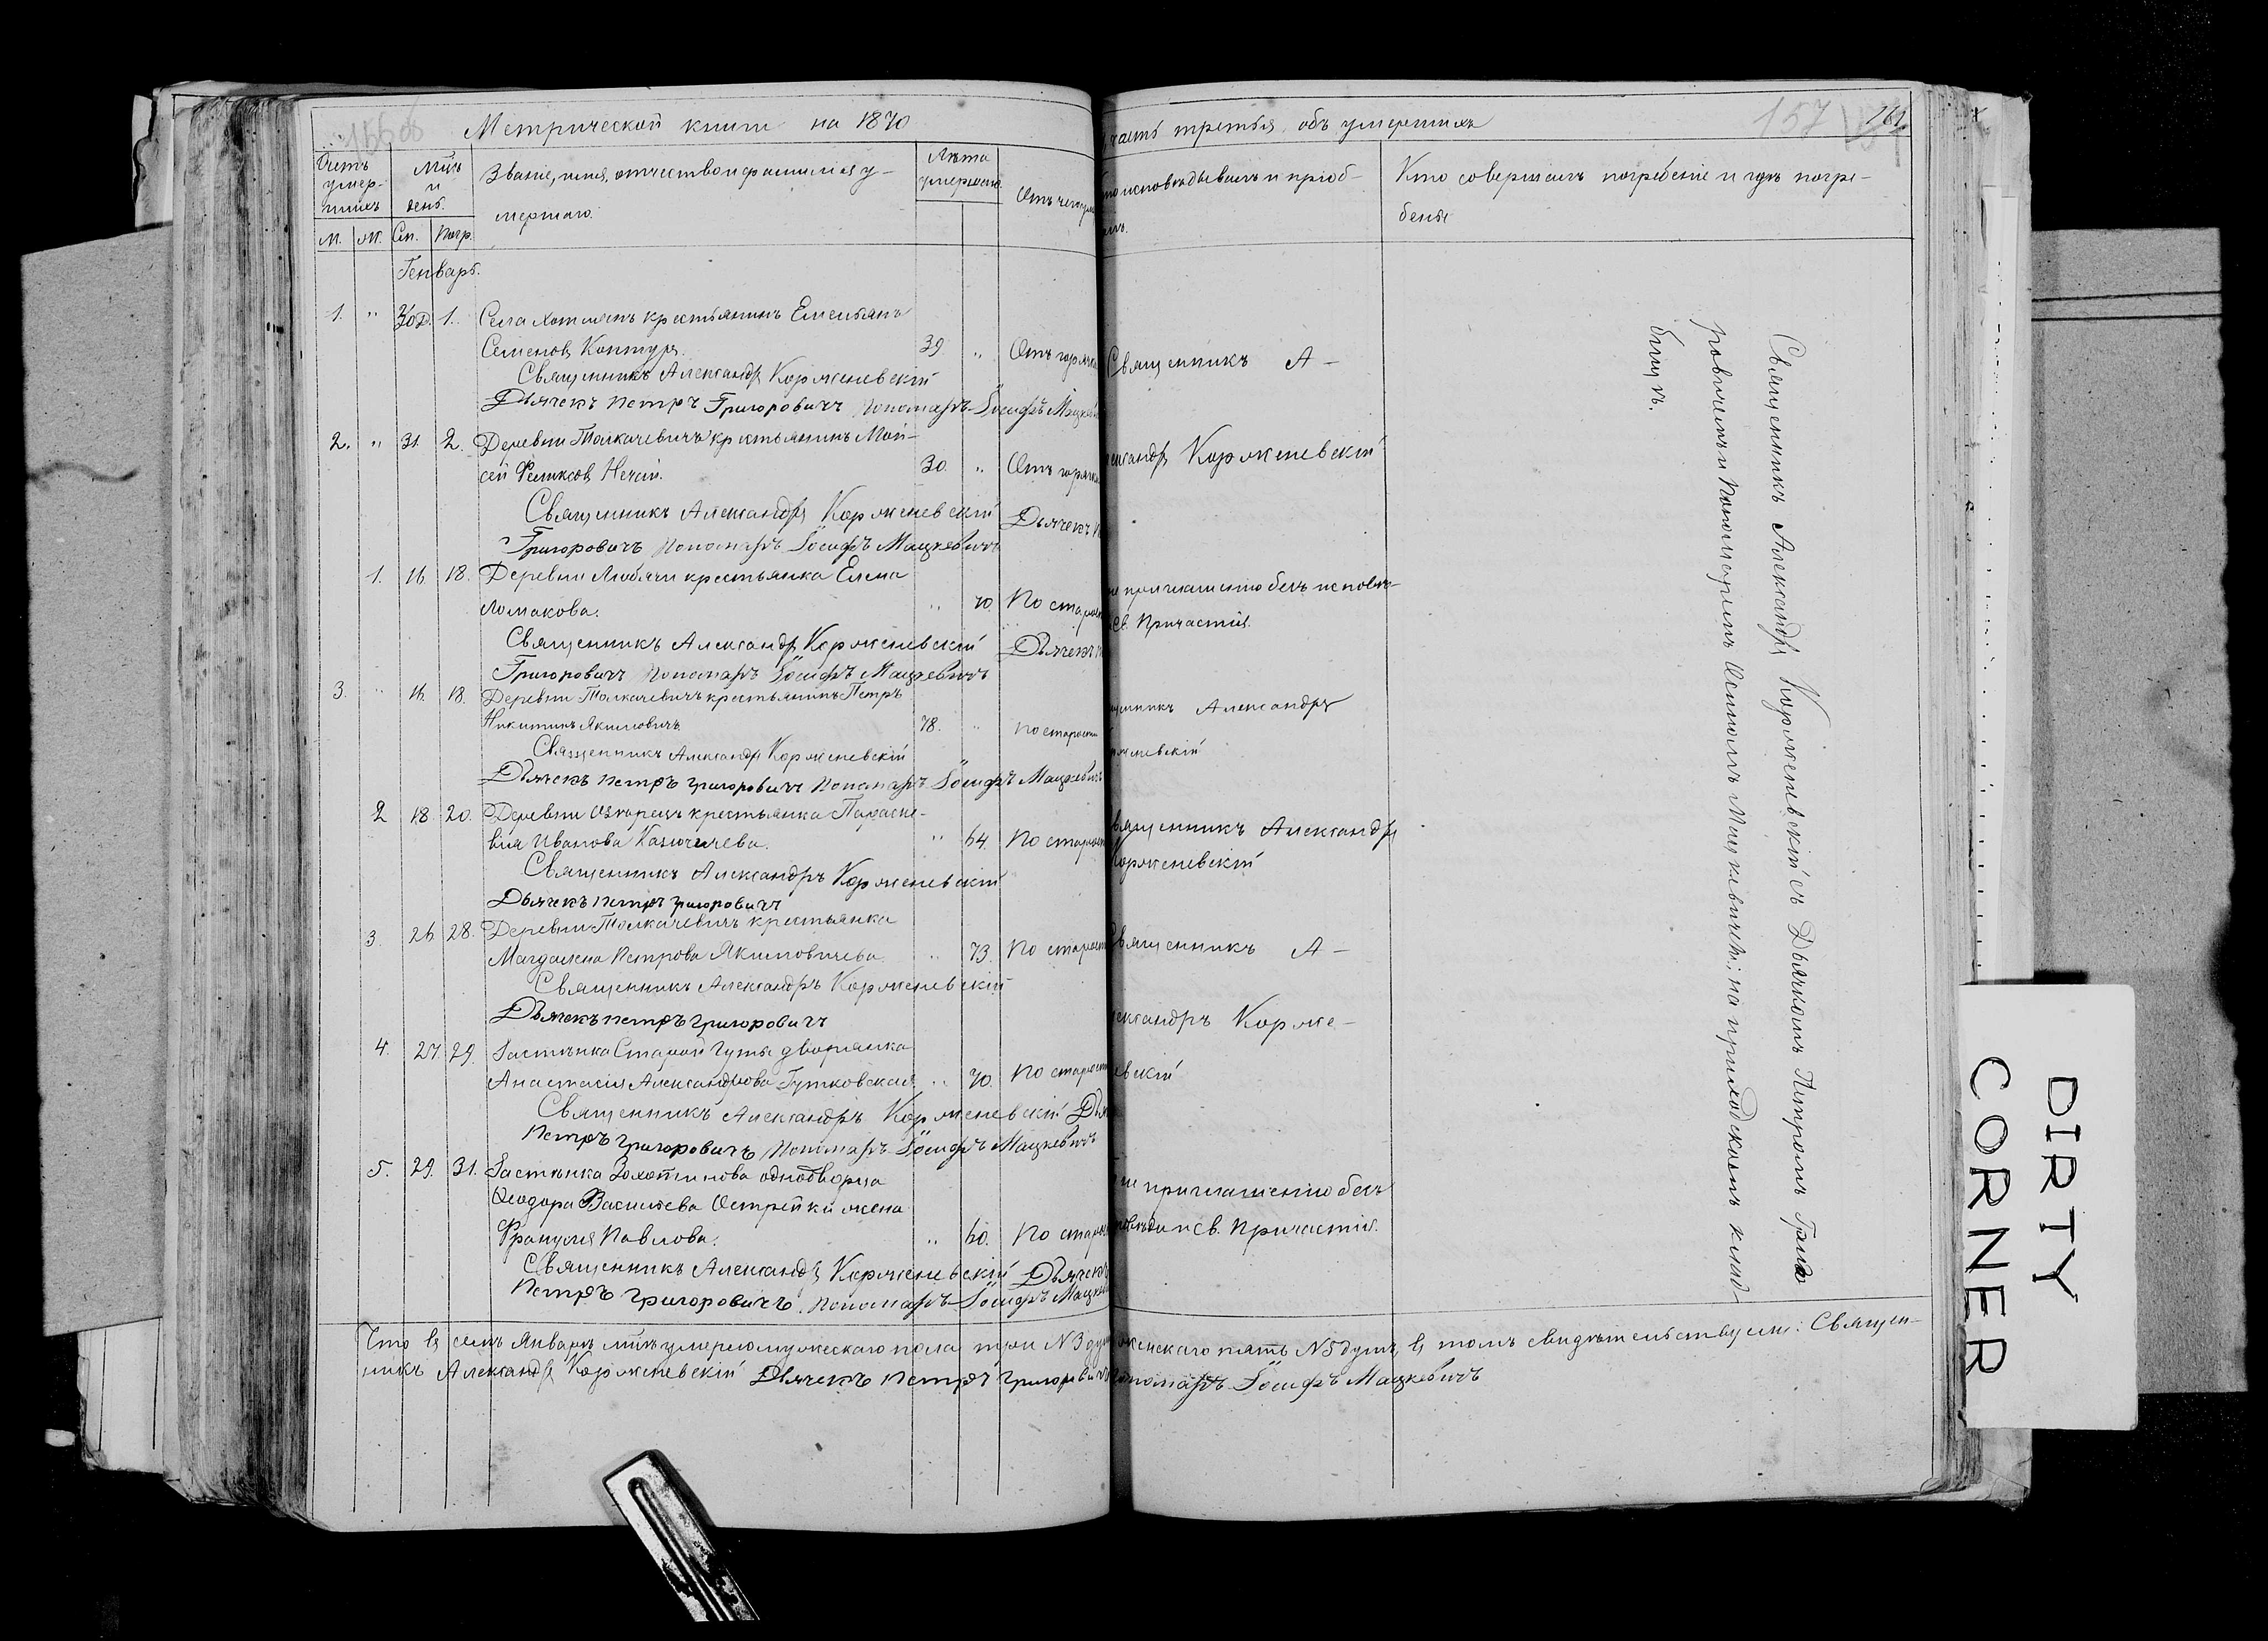 Метрической книги на 1870
часть третья, объ умершихъ
157
161
Счетъ умер-
шихъ
М-цъ
и
день.
Званіе, имя, отчество и фамилія у-
мершаго.
Лѣта
умершаго.
Отъ чего
исповѣдывалъ и пріоб-
Кто совершалъ погребеніе и гдѣ погре-
бены
М. Ж. См. Погр.
Генварь.
1. " 30 Д. 1. Села крестьянинъ Емельянъ
Семеновъ 39. " Отъ горячки
Священникъ А-
Священникъ Александръ Корженевскій
Дьячекъ Петръ Григоровичъ Пономарь Іосифъ Мацкевичъ
2. " 31. 2. Деревни Толкачевичъ крестьянинъ Мои-
сей Феликсовъ Нечай. 30. " Отъ горячки
лександръ Корженевскій
Священникъ Александръ Корженевскій Дьячекъ
Григоровичъ Пономарь Іосифъ Мацкевичъ
1. 16. 18. Деревни Любячи крестьянка Елена
Ломакова. " 70. По старости
приглашенію безъ исповѣ-
Св. Причастія.
Священникъ Александръ Корженевскій Дьячекъ
Григоровичъ Пономарь Іосифъ Мацкевичъ
3. " 16. 18. Деревни Толкачевичъ крестьянинъ Петръ
Никитинъ Якимовичъ 78. " по старости
щенникъ Александръ
рженевскій
Священникъ Александръ Корженевскій
Дьячекъ Петръ Григоровичъ Пономарь Іосифъ Мацкевичъ
2 18 20. Деревни крестьянка Параске-
вія Иванова " 64. По старости
вященникъ Александръ
Корженевскій
Священникъ Александръ Корженевскій
Дьячекъ Петръ Григоровичъ
3. 26. 28. Деревни Толкачевичъ крестьянка
Магдалена Петрова Якимовичева " 73. По старости
Священникъ А-
Священникъ Александръ Корженевскій
Дьячекъ Петръ Григоровичъ
лександръ Корже-
4. 27. 29. Застѣнка Старой Гуты дворянка
Анастасія Александрова Гутковская. " 70. По старости
евскій
Священникъ Александръ Корженевскій Дья
Петръ Григоровичъ Пономарь Іосифъ Мацкевичъ
5. 29. 31. Застѣнка однодворца
Ѳеодора Васильева Острейки жена
Францишка Павлова. " 60. По старости
приглашенію безъ
и Св. Причастія.
Священникъ Александръ Корженевскій Дьячекъ
Петръ Григоровичъ. Пономарь Іосифъ Мацкевичъ
Что въ семъ Январѣ м-цѣ умерло мужескаго пола три № 3 женскаго пять № 5 душъ, въ томъ свидѣтельствуемъ: Священ-
никъ Александръ Корженевскій Дьячекъ Петръ Григоровичъ Пономарь Іосифъ Мацкевичъ
Священникъ Александръ Корженевскій съ Дьячкомъ Петромъ Григо
ровичемъ и Пономаремъ Осипомъ Мацкевичемъ; на приходскомъ клад
бищѣ.
DIRTY
CORNER